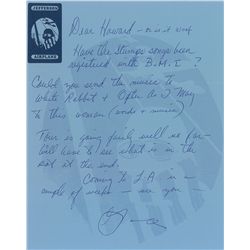 JEFFERSON
AIRPLANE
Dear Howard — or is it Woof
Have the Stumps songs been
registered with B.M.I?
Could you send the music to
White Rabbit & Often As I May
to this woman (words & music)
Tour is going fairly well so far
will have to see what is in the
pot at the end.
Coming to L.A. in a
couple of weeks — see you —